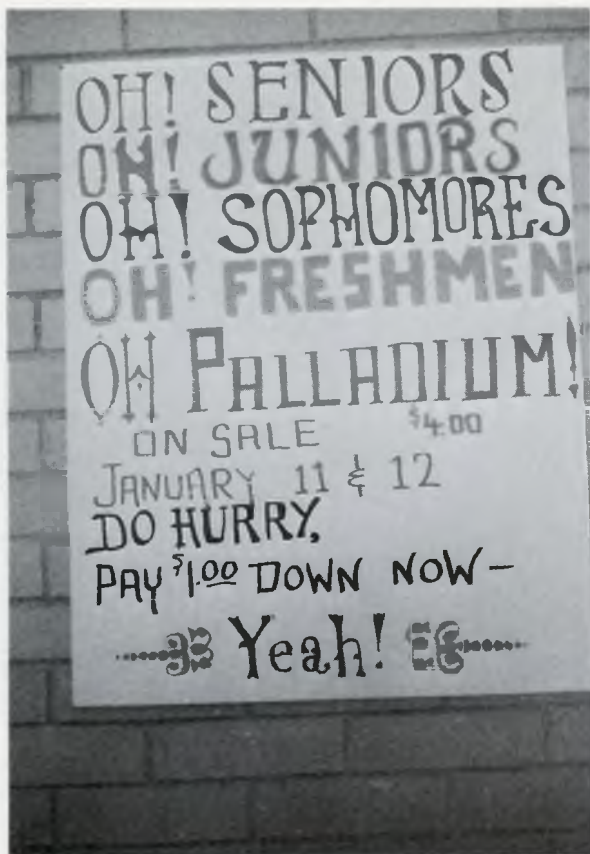 OH! SENIORS
OH! JUNIORS
OH! SOPHOMORES
OH! FRESHMEN
OH PALLADIUM!
ON SALE $4.00
JANUARY 11 & 12
DO HURRY,
PAY $1.00 DOWN NOW-
Yeah!